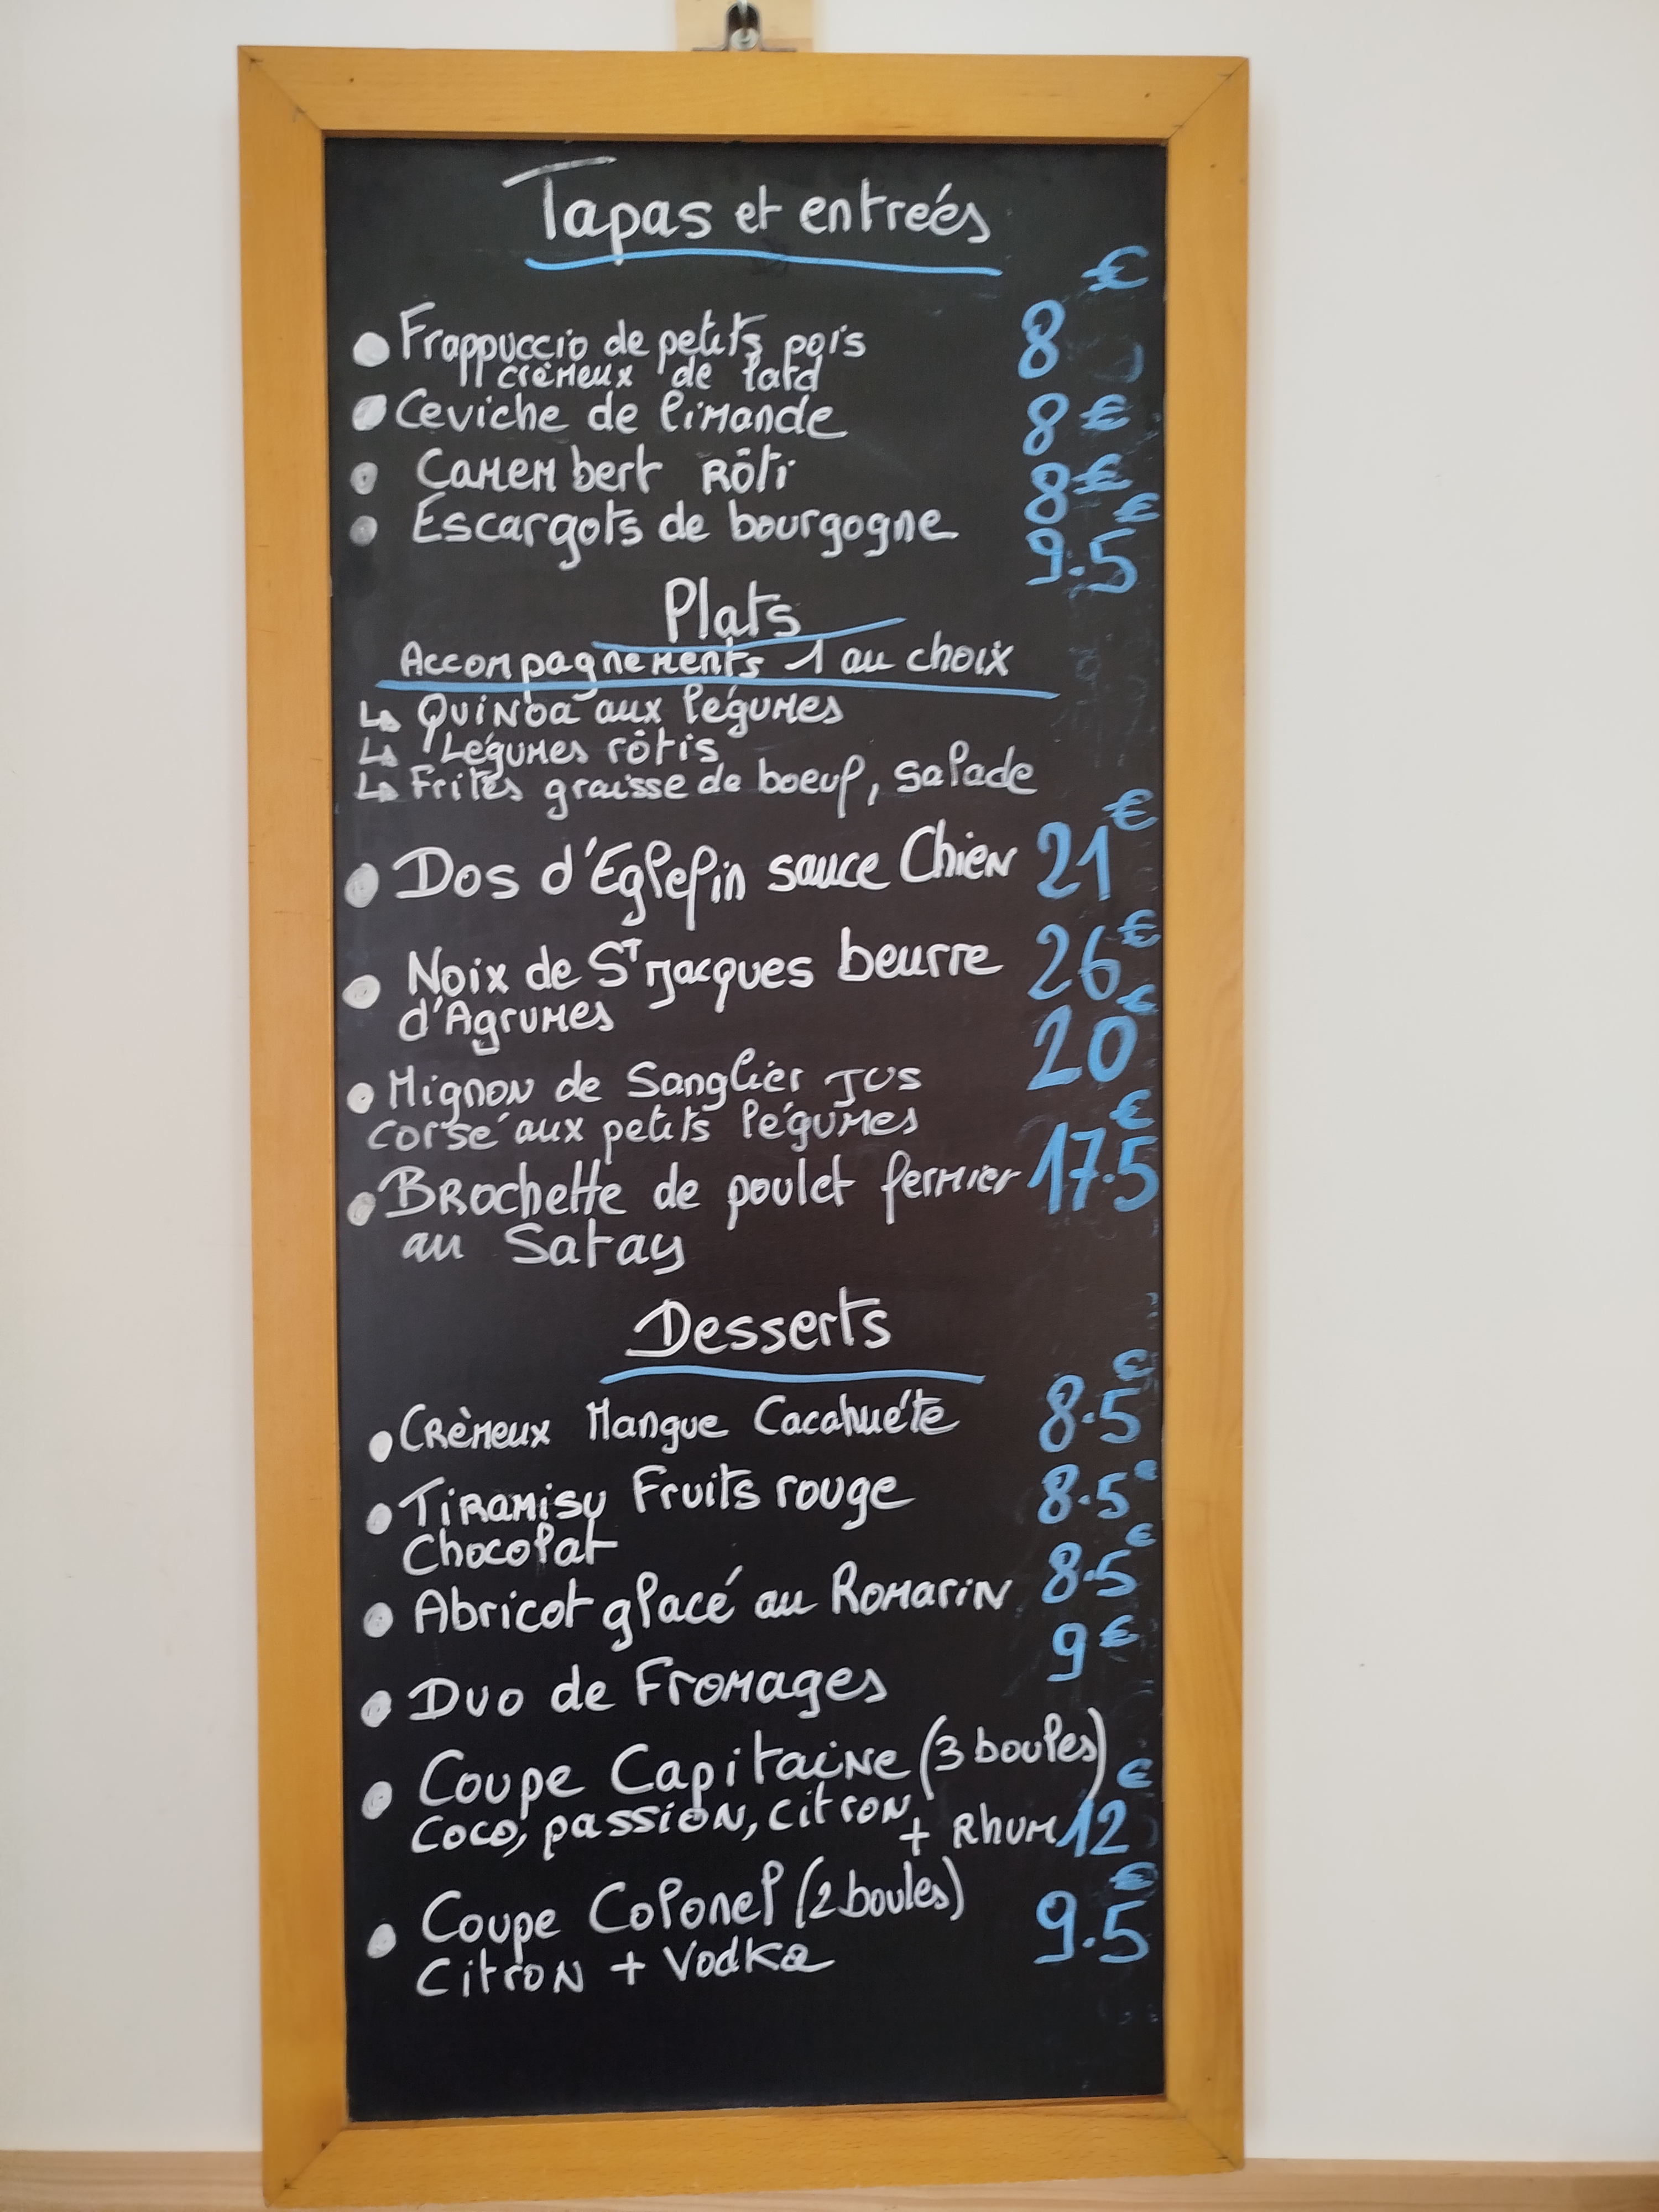 Tapas et entreés
€
Frappuccio de petits pois 8
crèmeux de lard
Ceviche de limande 8 €
Camembert Rôti 8 €
Escargots de bourgogne 9.5 €
Plats
Accompagnements 1 au choix
↳ Quinoa aux légumes
↳ Légumes rôtis
↳ Frites graisse de boeuf, salade
• Dos d'Eglefin sauce Chien 21 €
• Noix de St Jacques beurre 26 €
d'Agrumes
• Mignon de Sanglier Jus 20 €
corsé aux petits légumes
• Brochette de poulet fermier 17.5 €
au Satay
Desserts
• Crèmeux Mangue Cacahuéte 8.5 €
• Tiramisu Fruits rouge 8.5 €
Chocolat
• Abricot glacé au Romarin 8.5 €
• Duo de Fromages 9 €
• Coupe Capitaine (3 boules)
Coco, passion, citron + Rhum 12 €
• Coupe Colonel (2 boules) 9.5 €
Citron + Vodka